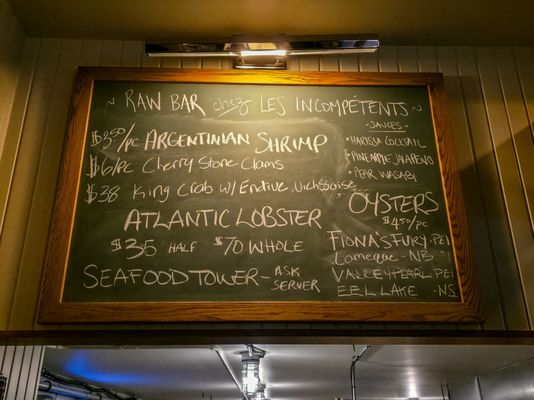 ~ RAW BAR chez LES INCOMPÉTENTS ~
$3⁵⁰/PC ARGENTINIAN SHRIMP
$6/PC Cherry Stone Clams
$38 King Crab w/ Endive, Vichssoise
ATLANTIC LOBSTER
$35 HALF $70 WHOLE
SEAFOOD TOWER - ASK SERVER
-SAUCES-
• HARISSA COCKTAIL
• PINEAPPLE JALAPENO
• PEAR WASABI
OYSTERS
$4⁵⁰/PC
FIONA'S FURY-PEI
Lameque - NB
VALLEYPEARL-PEI
EEL LAKE -NS